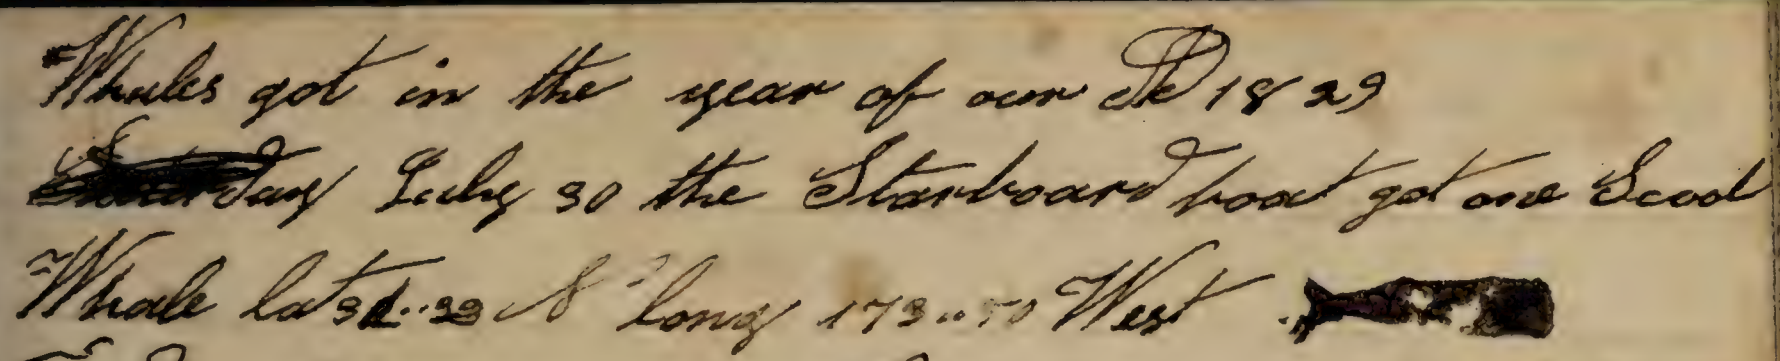 Whales got in the year of our 1829
July 30 the Starboard boat got one Scool
Whale lat N long 173..50 West